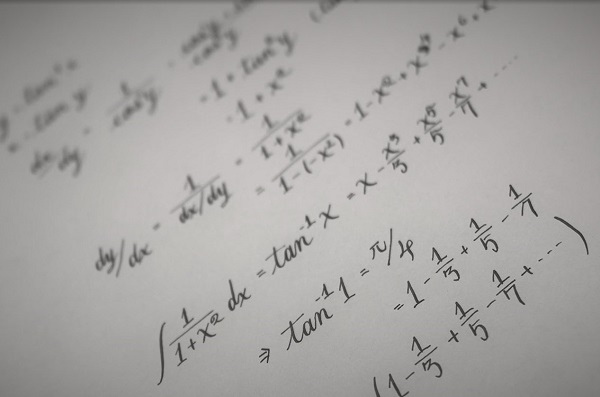 y = tan⁻¹x
x = tan y
dx/dy = 1/cos²y
= 1 + tan²y
= 1 + x²
dy/dx = 1/(dx/dy) = 1/(1+x²)
= 1/(1-(-x²)) = 1-x²+x⁴-x⁶+x
∫ 1/(1+x²) dx = tan⁻¹x = x - x³/3 + x⁵/5 - x⁷/7 + ....
⇒ tan⁻¹1 = π/4
= 1 - 1/3 + 1/5 - 1/7
(1 - 1/3 + 1/5 - 1/7 + ... )